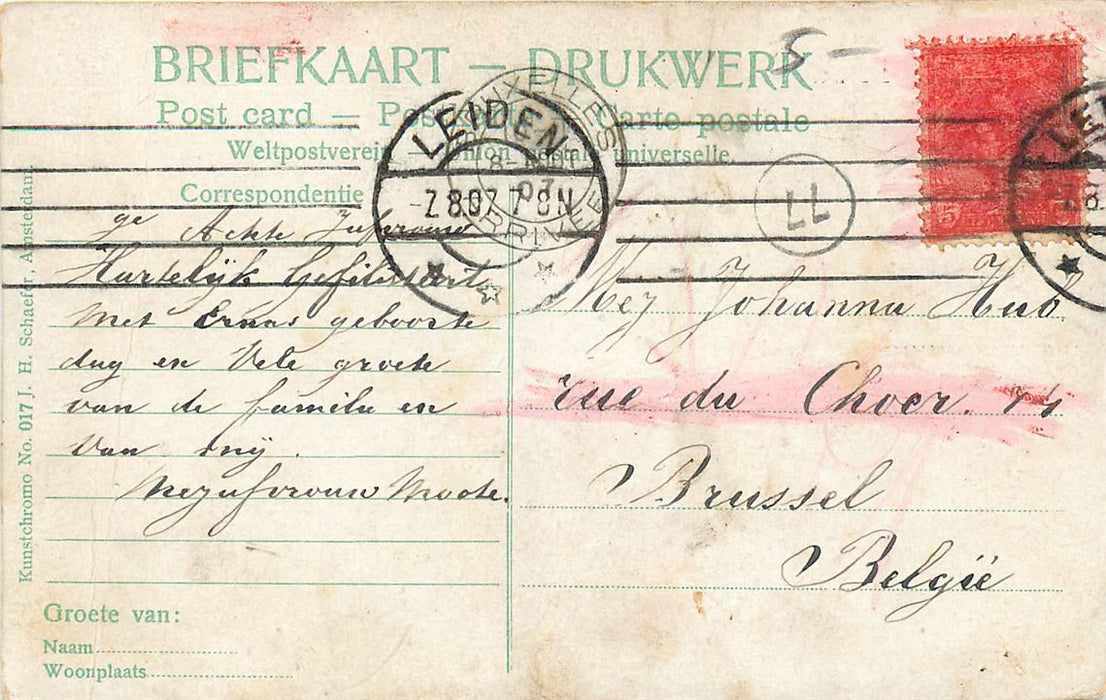 BRIEFKAART — DRUKWERK
5-
Post card — Carte postale
Weltpostverein — Union postale universelle.
Correspondentie
LEIDEN
7.8.07 7-8N
BRUXELLES
8
07
ARRIVEE
77
LEI
5
ge Achte Jufvrouw
Hartelijk Gefilisiteert
met Ernas geboorte
dag en Vele groete
van de familie en
Van mij.
Mezufvrouw Moote.
Mej Johanna Hub
rue du Choer. 14
Brussel
België
Groete van:
Naam
Woonplaats
Kunstchromo No. 017 J. H. Schaefer, Amsterdam.